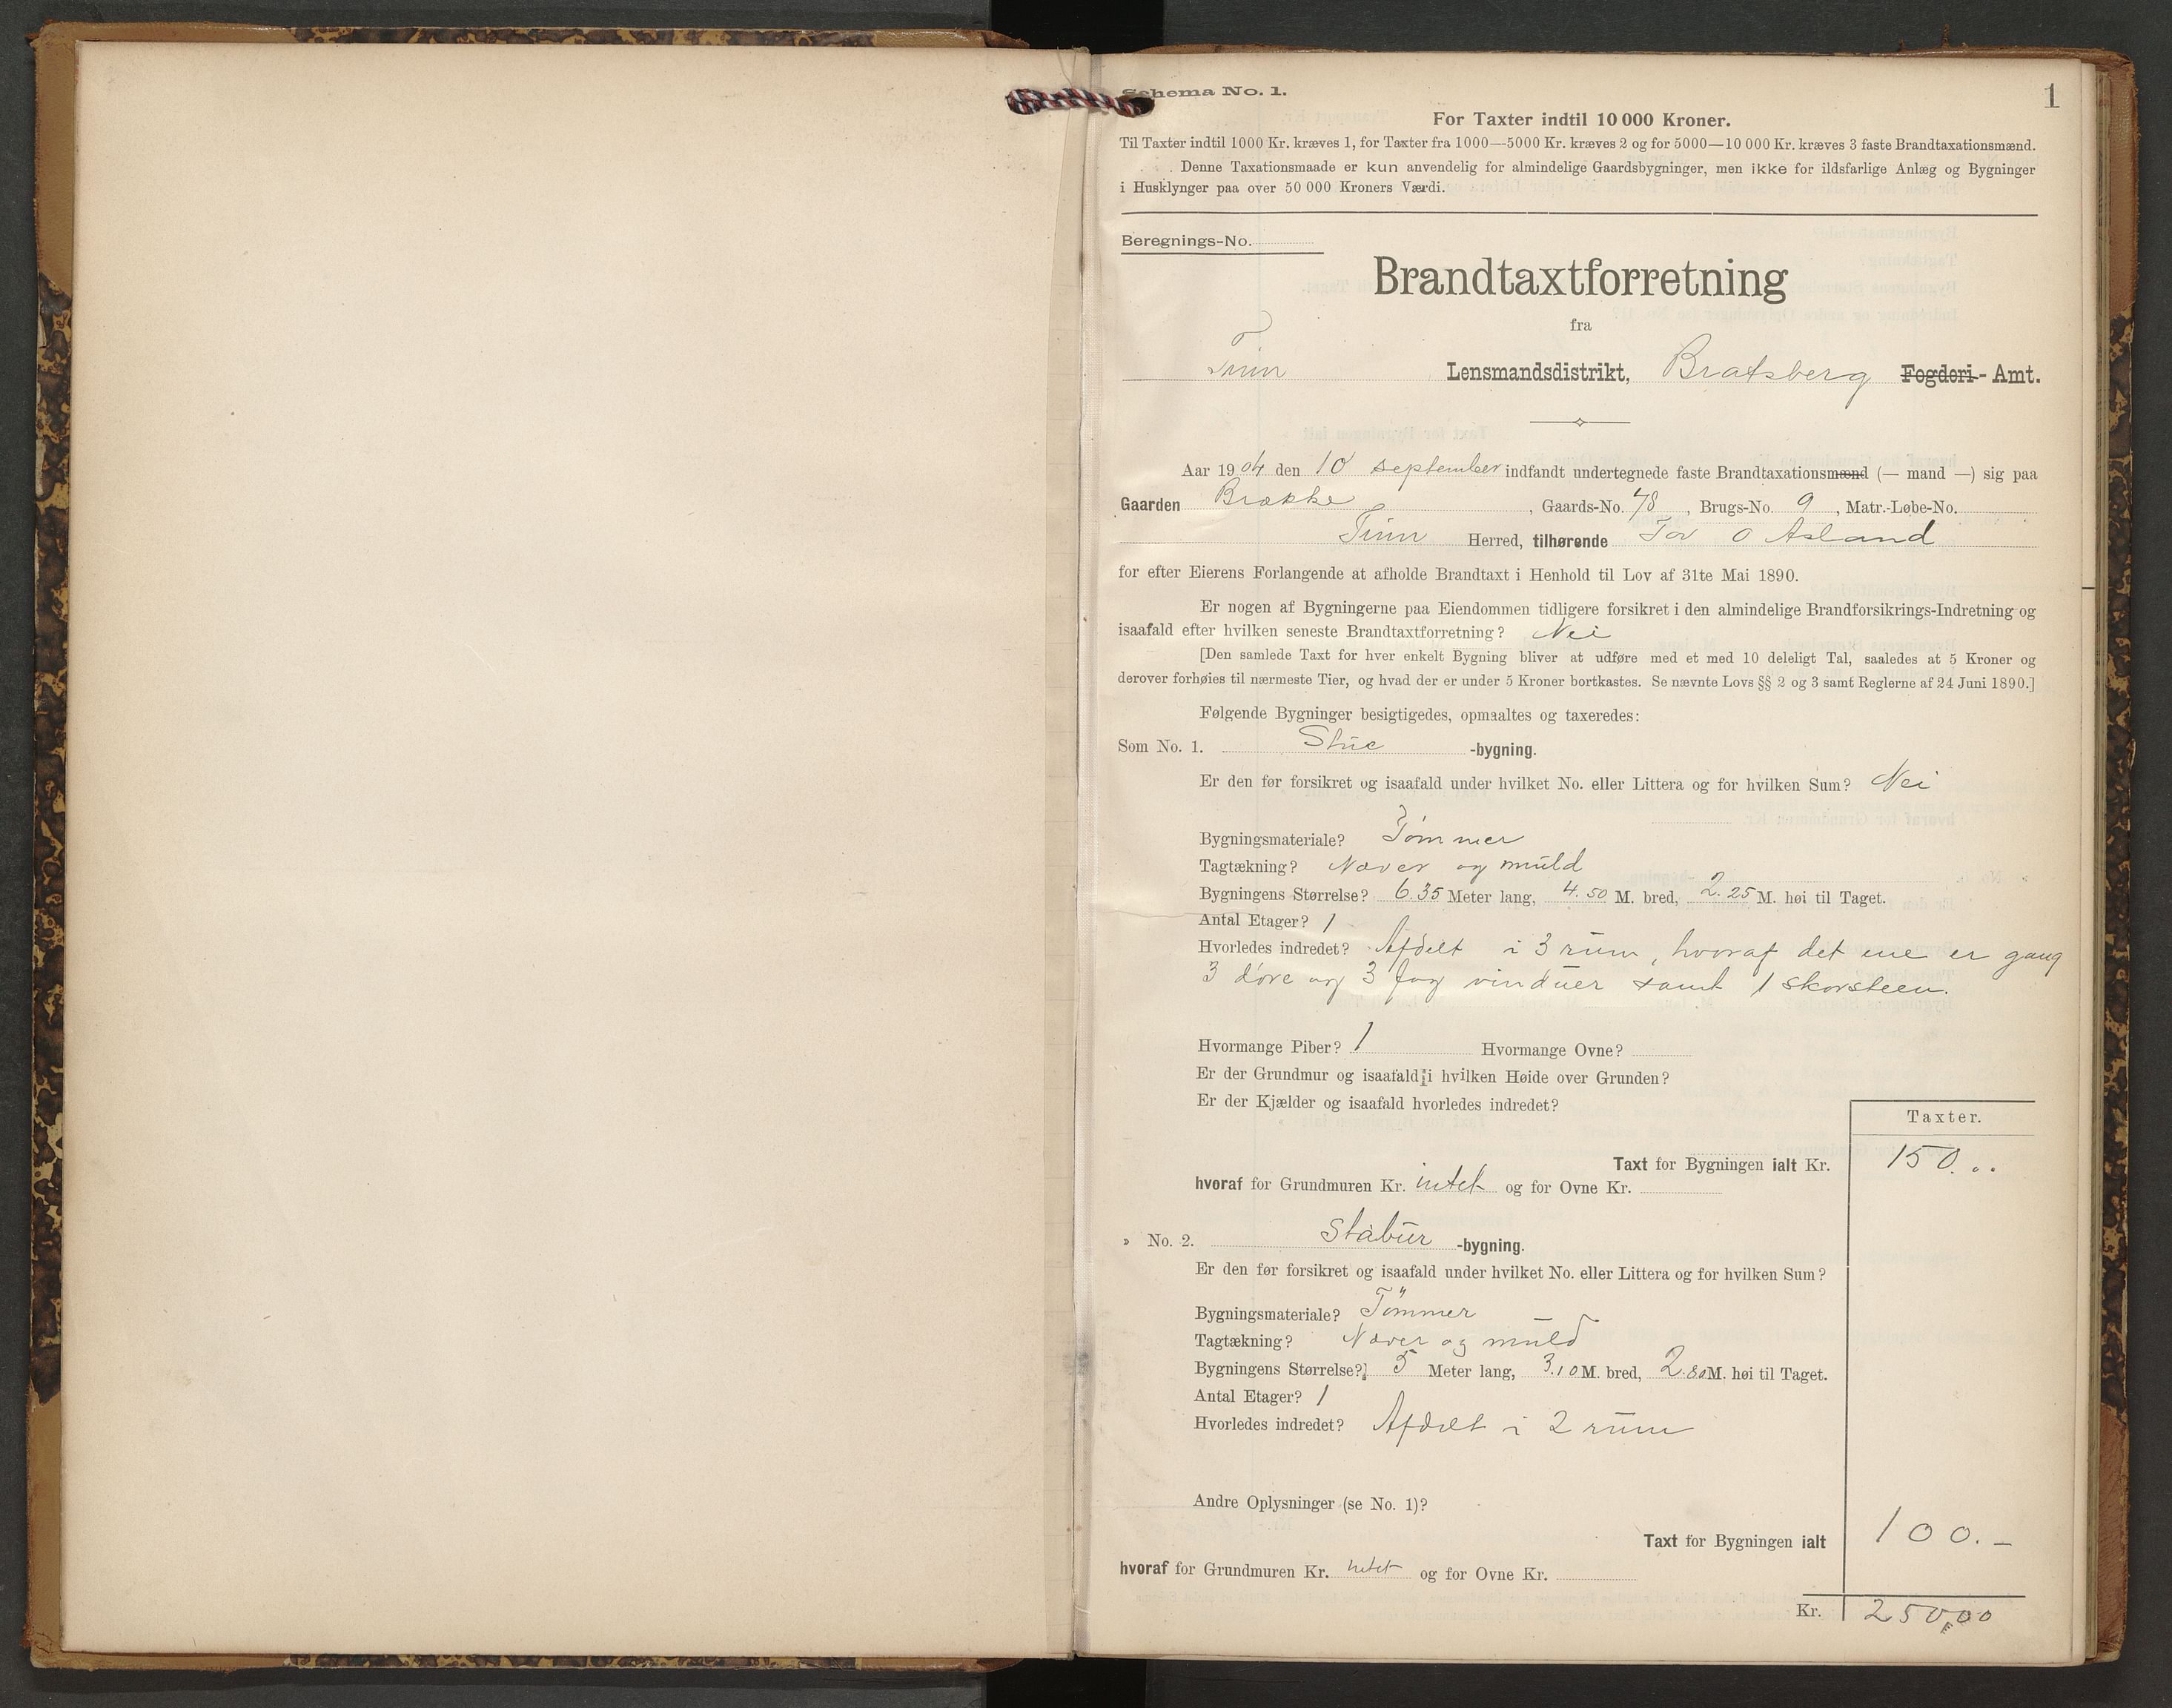 Schema No. 1.
1
For Taxter indtil 10 000 Kroner.
Til Taxter indtil 1000 Kr. kræves 1, for Taxter fra 1000—5000 Kr. kræves 2 og for 5000—10 000 Kr. kræves 3 faste Brandtaxationsmænd.
Denne Taxationsmaade er kun anvendelig for almindelige Gaardsbygninger, men ikke for ildsfarlige Anlæg og Bygninger
i Husklynger paa over 50 000 Kroners Værdi.
Beregnings-No.
Brandtaxtforretning
fra
Tinn Lensmandsdistrikt, Bratsberg Fogderi- Amt.
Aar 1904 den 10 september indfandt undertegnede faste Brandtaxationsmænd (— mand —) sig paa
Gaarden Brække, Gaards-No. 48, Brugs-No. 9, Matr.-Løbe-No.
Tinn Herred, tilhørende Tov O Asland
for efter Eierens Forlangende at afholde Brandtaxt i Henhold til Lov af 31te Mai 1890.
Er nogen af Bygningerne paa Eiendommen tidligere forsikret i den almindelige Brandforsikrings-Indretning og
isaafald efter hvilken seneste Brandtaxtforretning? Nei
[Den samlede Taxt for hver enkelt Bygning bliver at udføre med et med 10 deleligt Tal, saaledes at 5 Kroner og
derover forhøies til nærmeste Tier, og hvad der er under 5 Kroner bortkastes. Se nævnte Lovs §§ 2 og 3 samt Reglerne af 24 Juni 1890.]
Følgende Bygninger besigtigedes, opmaaltes og taxeredes:
Som No. 1. Stue -bygning.
Er den før forsikret og isaafald under hvilket No. eller Littera og for hvilken Sum? Nei
Bygningsmateriale? Tømmer
Tagtækning? Næver og muld
Bygningens Størrelse? 6.35 Meter lang, 4.50 M. bred, 2.25 M. høi til Taget.
Antal Etager? 1
Hvorledes indredet? Afdelt i 3 rum, hvoraf det ene er gang
3 døre og 3 fag vinduer samt 1 skorsteen.
Hvormange Piber? 1 Hvormange Ovne?
Er der Grundmur og isaafald i hvilken Høide over Grunden?
Er der Kjælder og isaafald hvorledes indredet?
Taxter.
Taxt for Bygningen ialt Kr. 150..
hvoraf for Grundmuren Kr. intet og for Ovne Kr.
» No. 2. Stabur -bygning.
Er den før forsikret og isaafald under hvilket No. eller Littera og for hvilken Sum?
Bygningsmateriale? Tömmer
Tagtækning? Næver og muld
Bygningens Størrelse? 5 Meter lang, 3.10 M. bred, 2.80 M. høi til Taget.
Antal Etager? 1
Hvorledes indredet? Afdelt i 2 rum
Andre Oplysninger (se No. 1)?
Taxt for Bygningen ialt 100.–
hvoraf for Grundmuren Kr. intet og for Ovne Kr.
Kr. 250,00